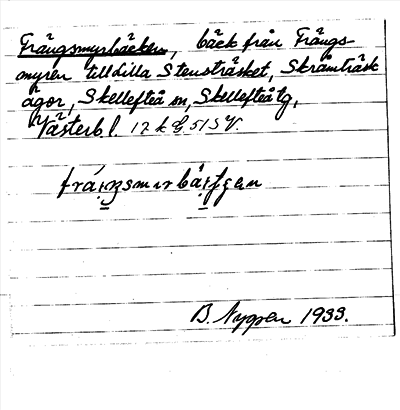 Frängsmyrbäcken, bäck från Frängs-
myren till Lilla Stensträsket, Skråmträsk
ägor, Skellefteå sn, Skellefteå tg,
Västerb. l. 12 k G. 515 V.
B. Nygren 1933.